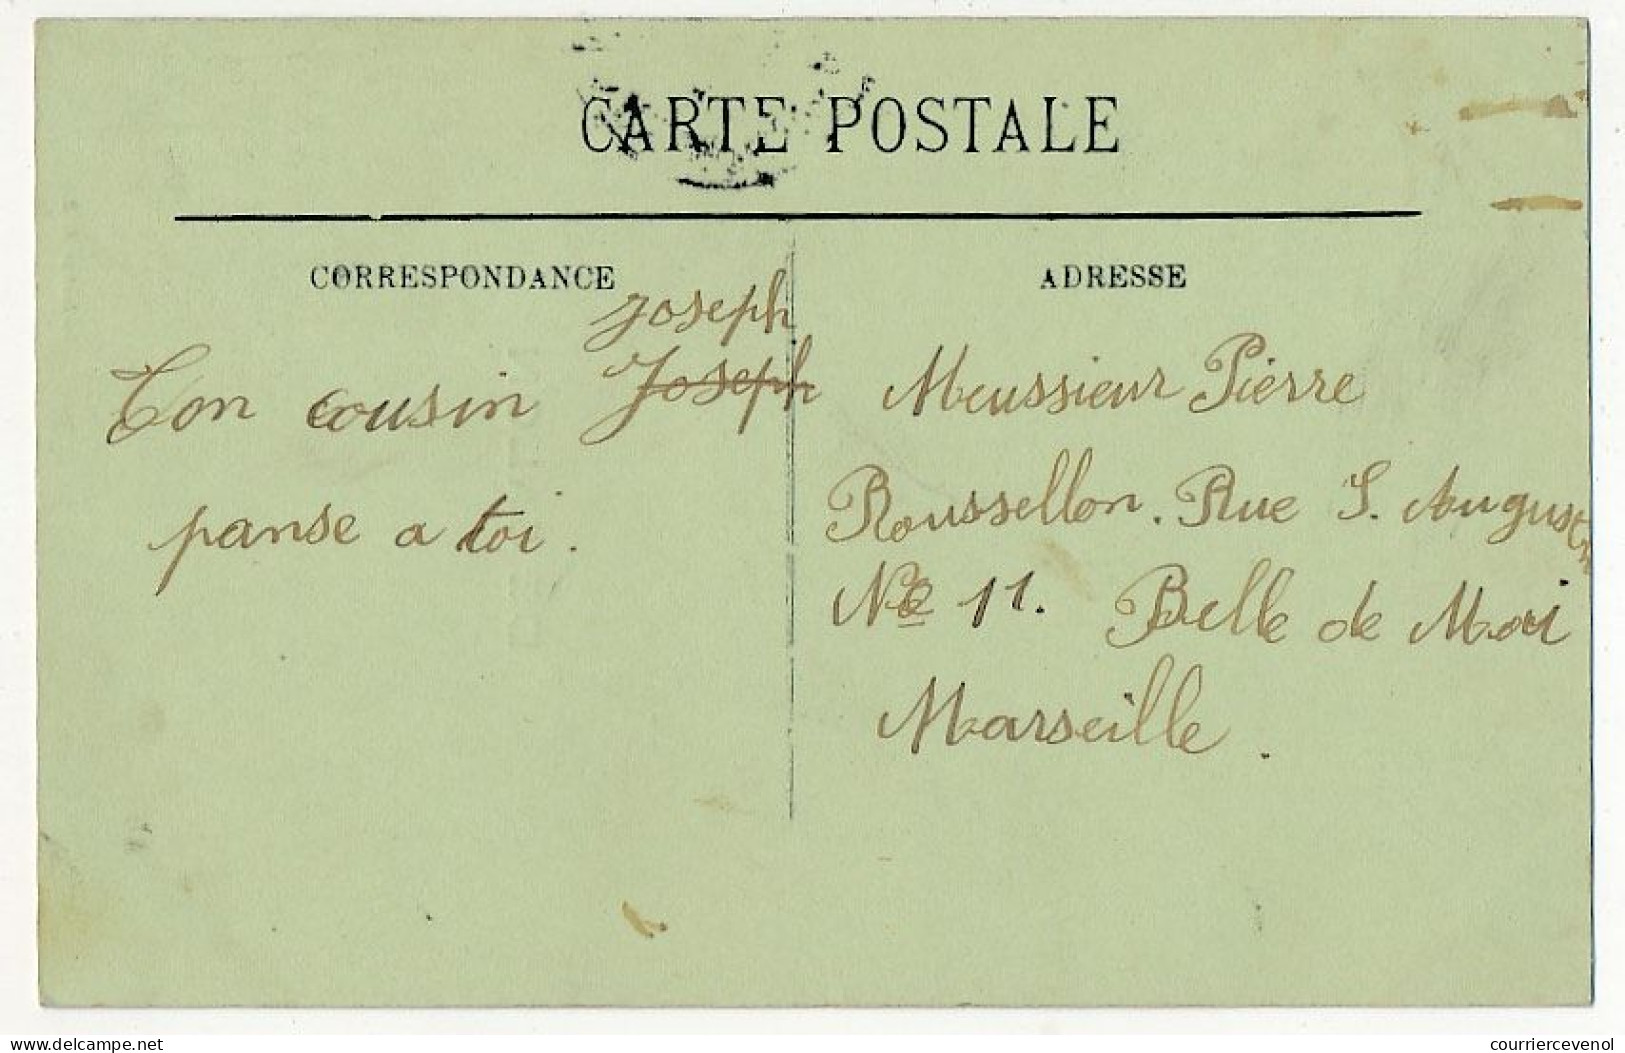 CARTE POSTALE
CORRESPONDANCE
ADRESSE
Joseph
Ton cousin Joseph
panse a toi.
Meussieur Pierre
Roussellon. Rue S. Augustin
No 11. Belle de Mai
Marseille.
delcampe.net
courriercevenol